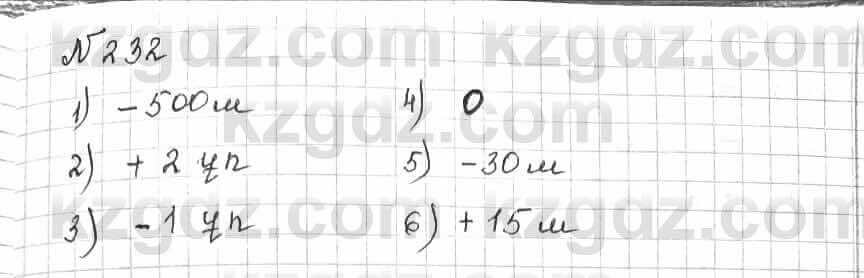 N 232
1) - 500 м
2) + 2  үп
3) - 1 үп
4) 0
5) - 30 м
6) + 15 м
kzgdz.com kzgdz.com
kzgdz.com
kzgdz.com kzgdz.com